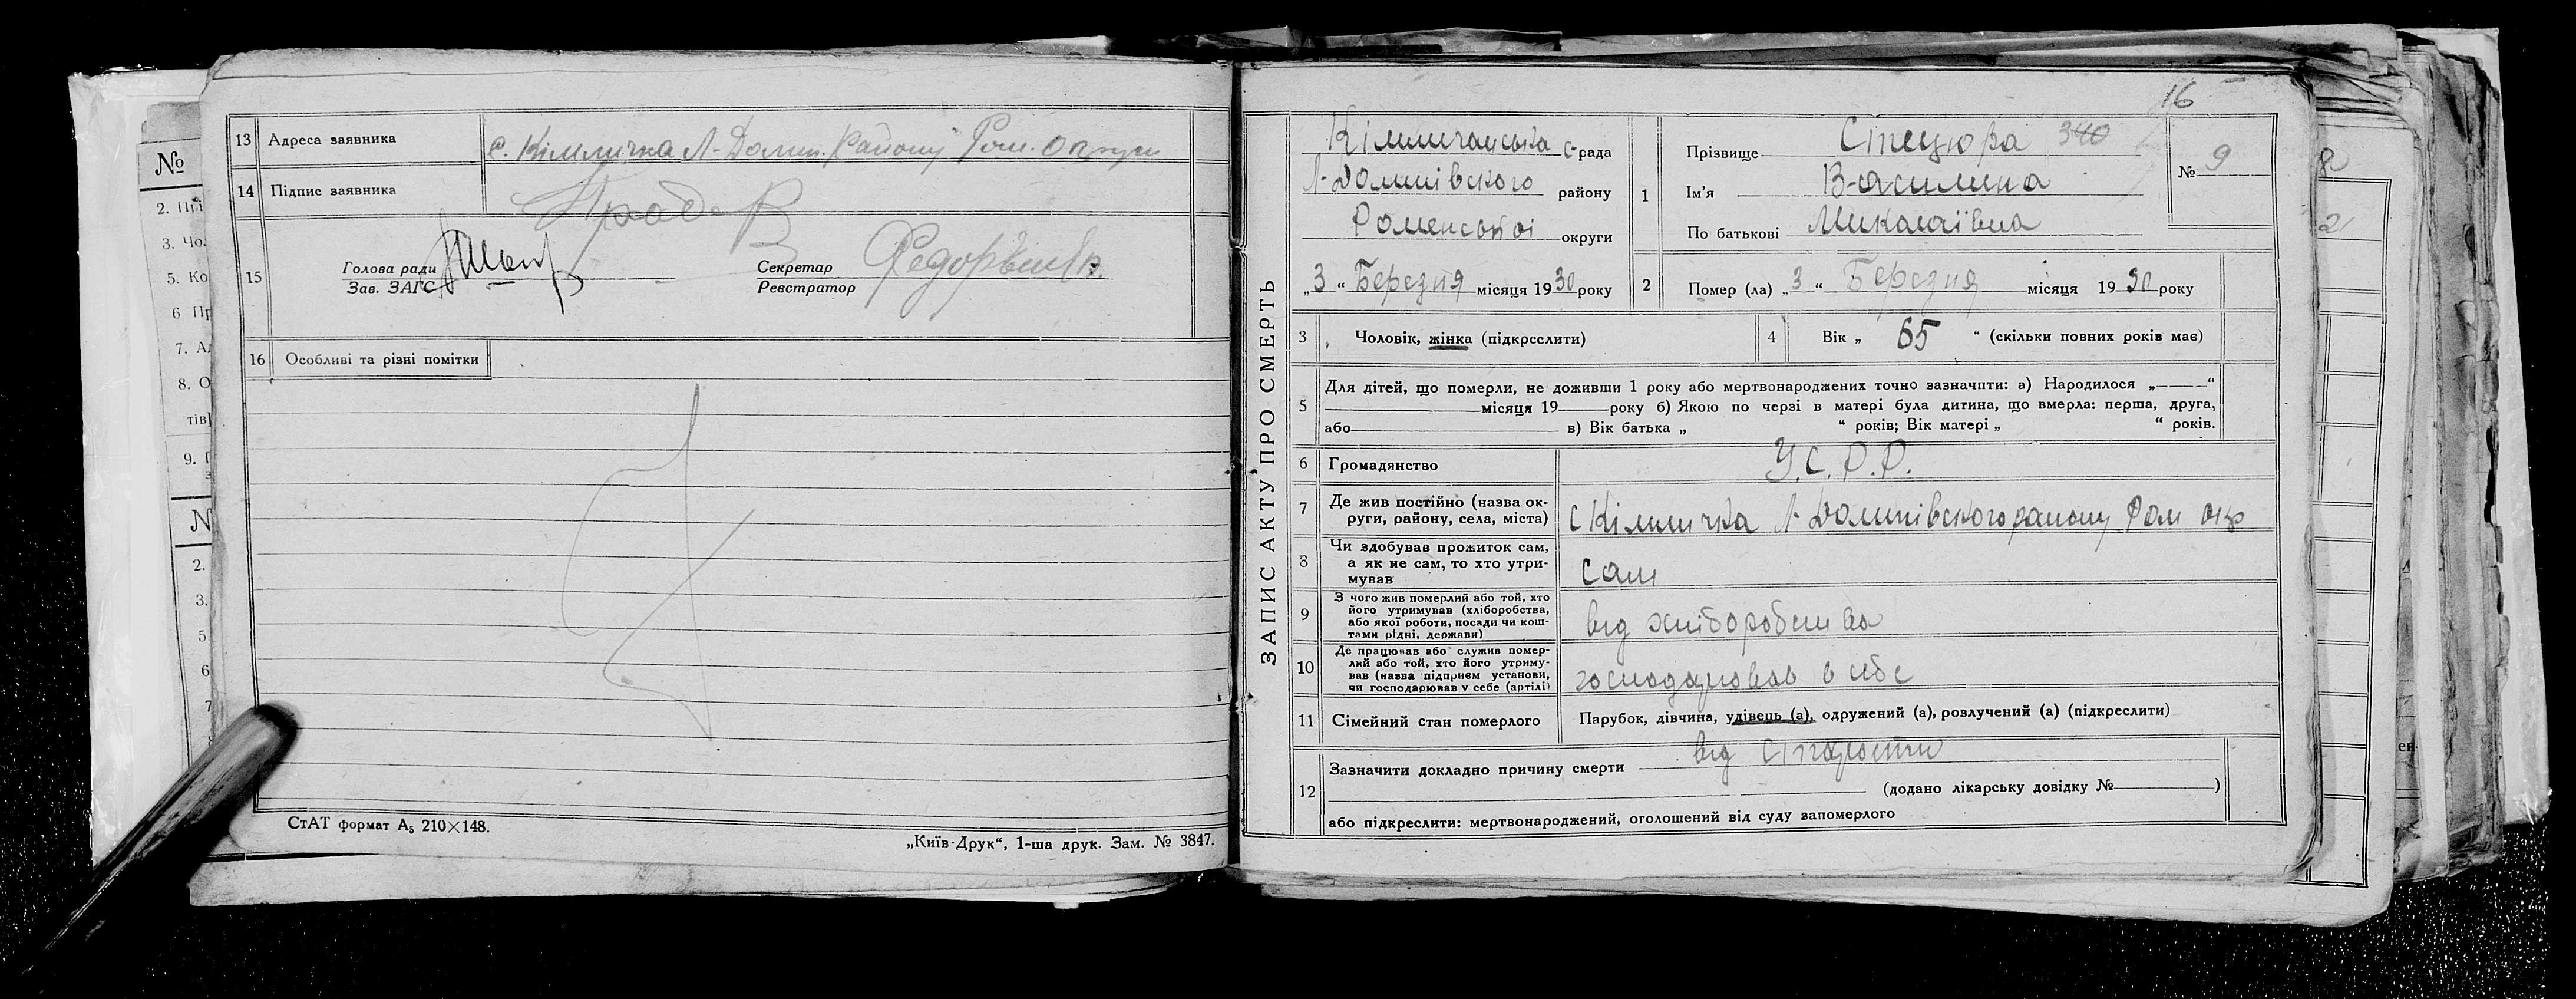 13 Адреса заявника с. Кімличка Л-Долин. Району Ром. Округи
14 Підпис заявника
15 Голова ради
Зав. ЗАГС
Секретар
Реєстратор
16 Особливі та різні помітки
СтАТ формат А₅ 210×148.
„Київ-Друк“, 1-ша друк. Зам. № 3847.
№
2.
3. Чо
5. Ко
6 Пр
7. А
8. О
тів
9.
2.
3.
5
6
7
16
ЗАПИС АКТУ ПРО СМЕРТЬ
Кімличанська С-рада
Л-Долинівського району
Роменської округи
„3“ Березня місяця 1930 року
1 Прізвище Стецюра 340
Ім'я Василина
По батькові Миколаївна
№ 9
2 Помер (ла) „3“ Березня місяця 1930 року
3 Чоловік, жінка (підкреслити)
4 Вік „65“ (скільки повних років має)
5 Для дітей, що померли, не доживши 1 року або мертвонароджених точно зазначити: а) Народилося „——“
місяця 19——року б) Якою по черзі в матері була дитина, що вмерла: перша, друга,
або—— в) Вік батька „ “ років; Вік матері „ “ років.
6 Громадянство У.С.Р.Р.
7 Де жив постійно (назва ок-
руги, району, села, міста) с Кімличка Л-Долинівского району Ром окр
8 Чи здобував прожиток сам,
а як не сам, то хто утри-
мував сам
9 З чого жив померлий або той, хто
його утримував (хліборобства,
або якої роботи, посади чи кош-
тами рідні, держави) від хліборобства
10 Де працював або служив помер-
лий або той, хто його утриму-
вав (назва підприєм установи,
чи господарював у себе (артілі) господарював в себе
11 Сімейний стан померлого Парубок, дівчина, удівець (а), одружений (а), розлучений (а) (підкреслити)
12 Зазначити докладно причину смерти від старости
(додано лікарську довідку №——)
або підкреслити: мертвонароджений, оголошений від суду запомерлого